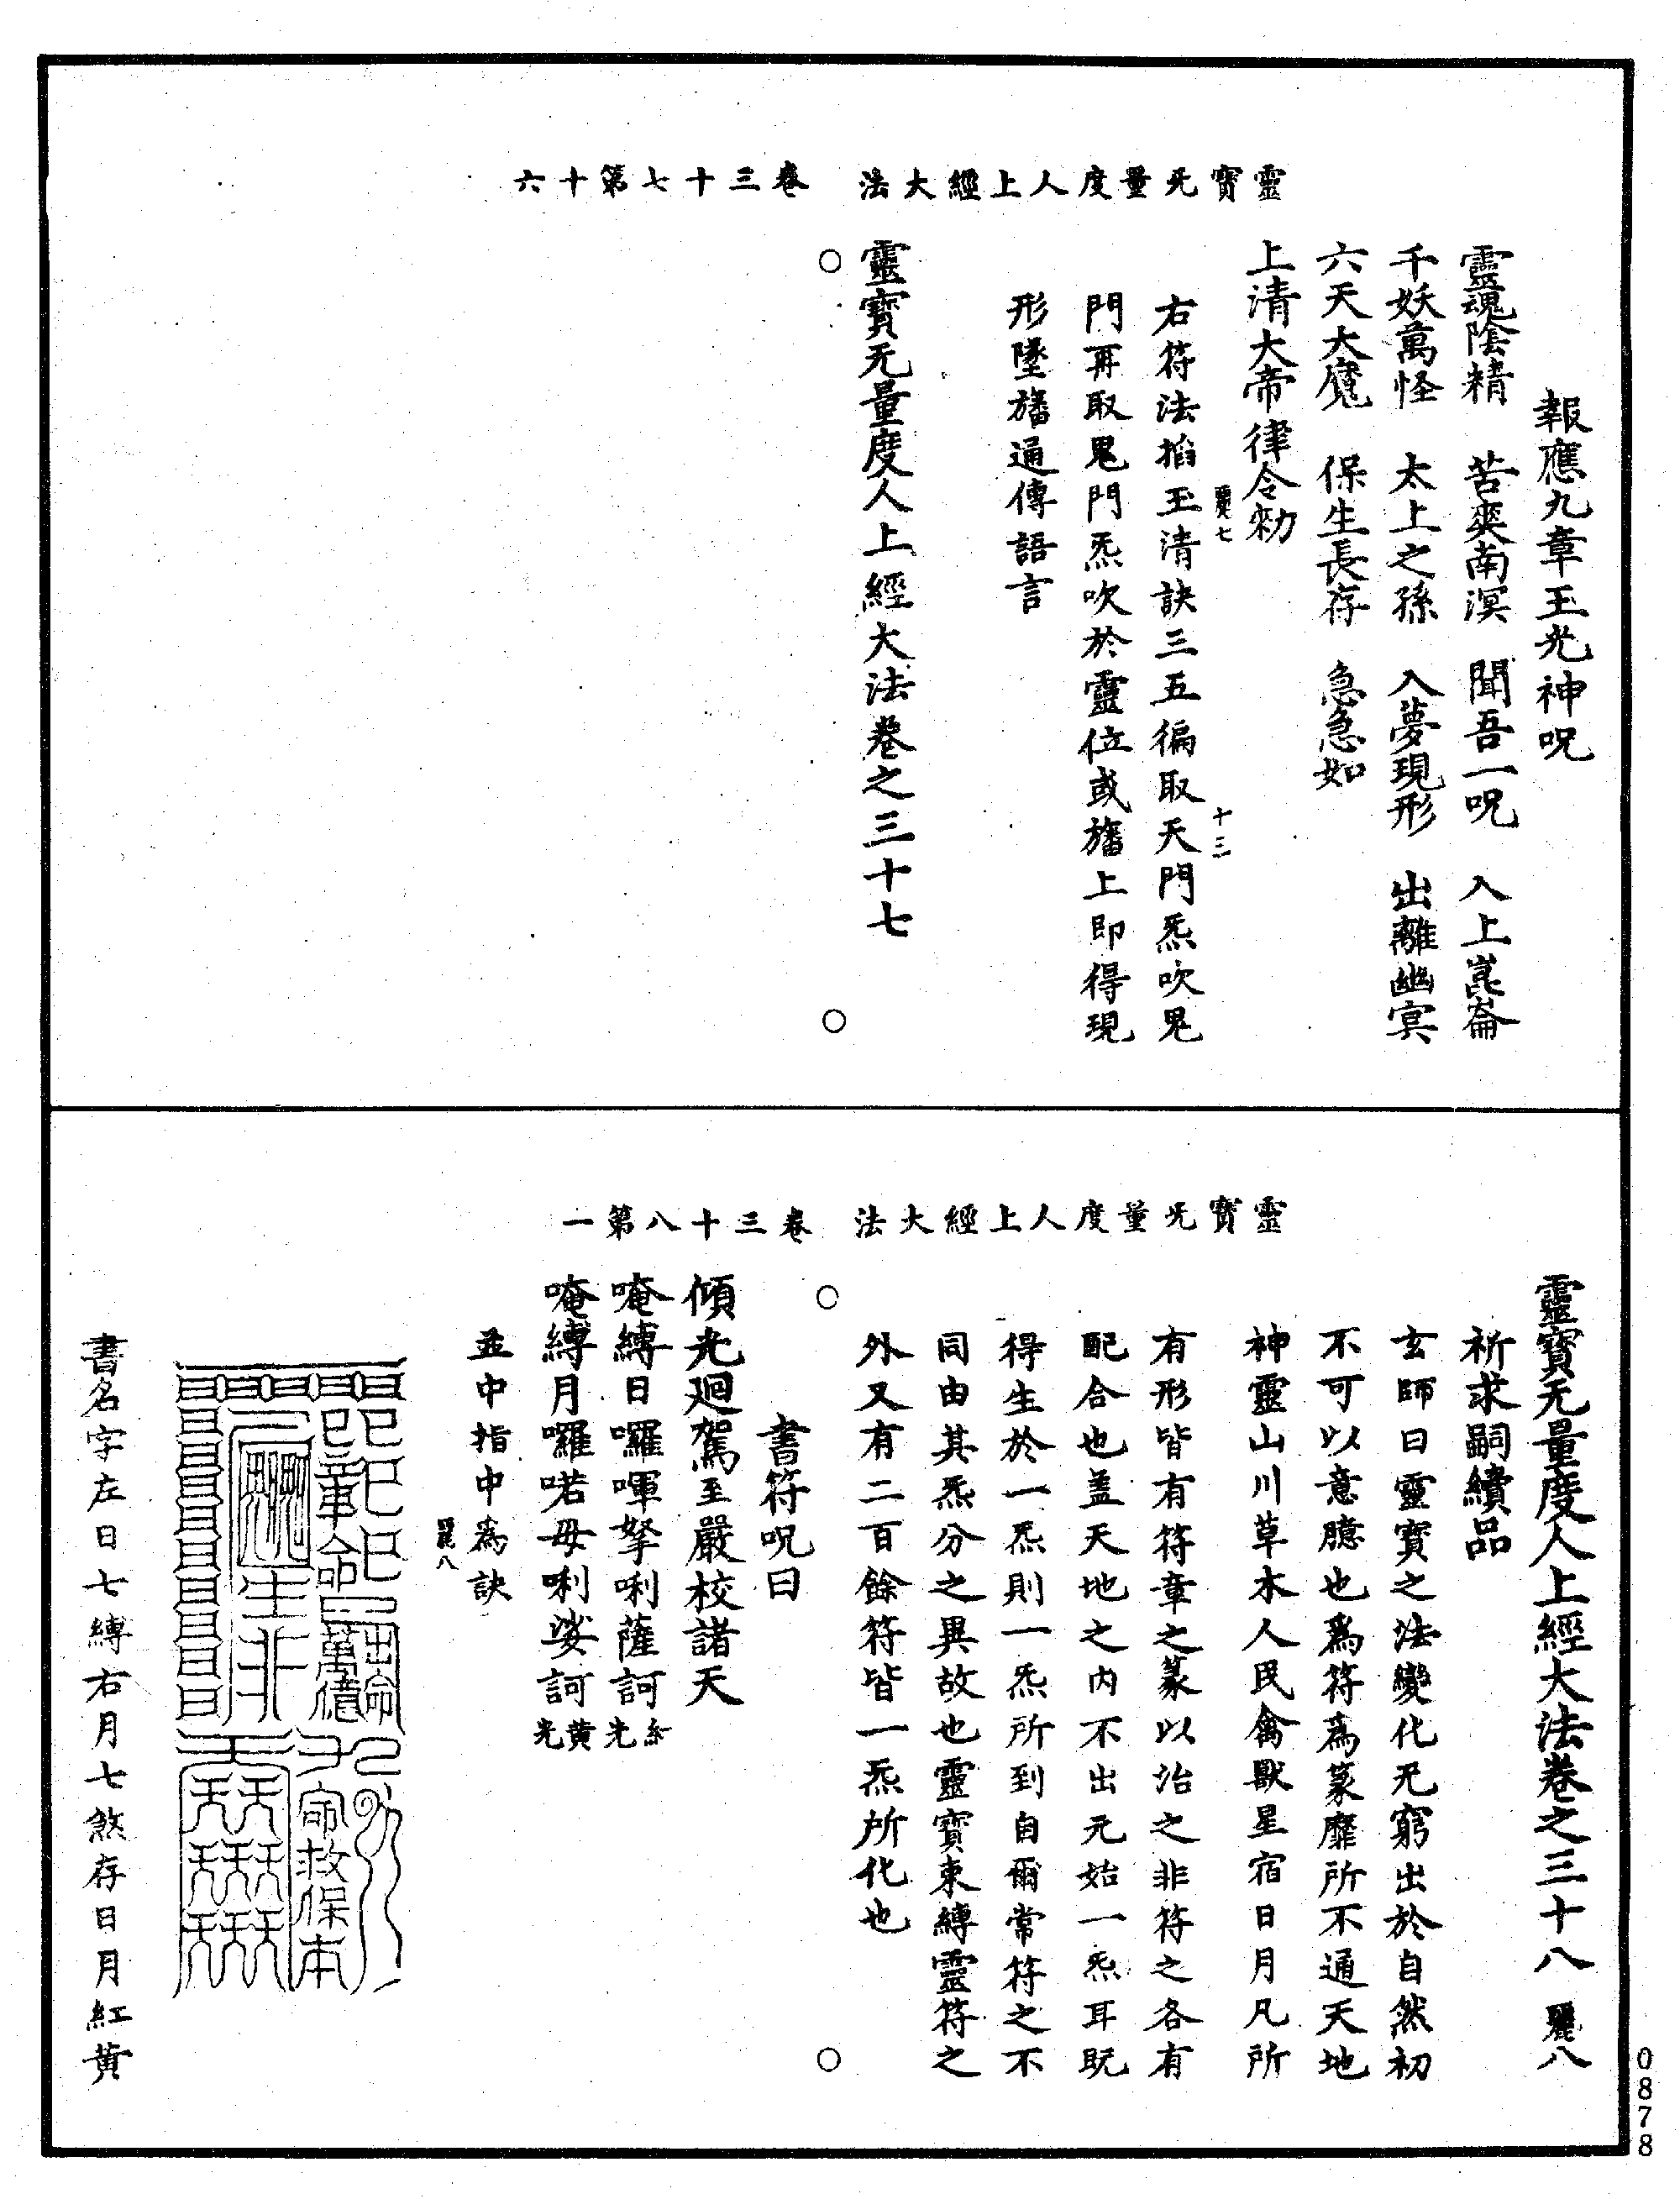 靈寶无量度人上經大法　卷三十七第十六
報應九章玉光神呪
靈魂陰精　苦爽南溟　聞吾一呪　入上崑崙
千妖萬怪　太上之孫　入夢現形　出離幽冥
六天大魔　保生長存　急急如
上清大帝律令勑
麗七　十三
右符法掐玉清訣三五徧取天門炁吹鬼
門再取鬼門炁吹於靈位或旛上即得現
形墜旛通傳語言
靈寶无量度人上經大法卷之三十七
靈寶无量度人上經大法　卷三十八第一
靈寶无量度人上經大法卷之三十八　麗八
祈求嗣續品
玄師曰靈寶之法變化无窮出於自然初
不可以意臆也爲符爲篆靡所不通天地
神靈山川草木人民禽獸星宿日月凡所
有形皆有符章之篆以治之非符之各有
配合也盖天地之内不出元始一炁耳既
得生於一炁則一炁所到自爾常符之不
同由其炁分之異故也靈寶束縛靈符之
外又有二百餘符皆一炁所化也
書符呪曰
傾光廻駕至嚴校諸天
唵縛日囉喗拏唎薩訶紅光
唵縛月囉喏毋唎娑訶黄光
並中指中爲訣
麗八
書名字左日七縛右月七煞存日月紅黄
0878